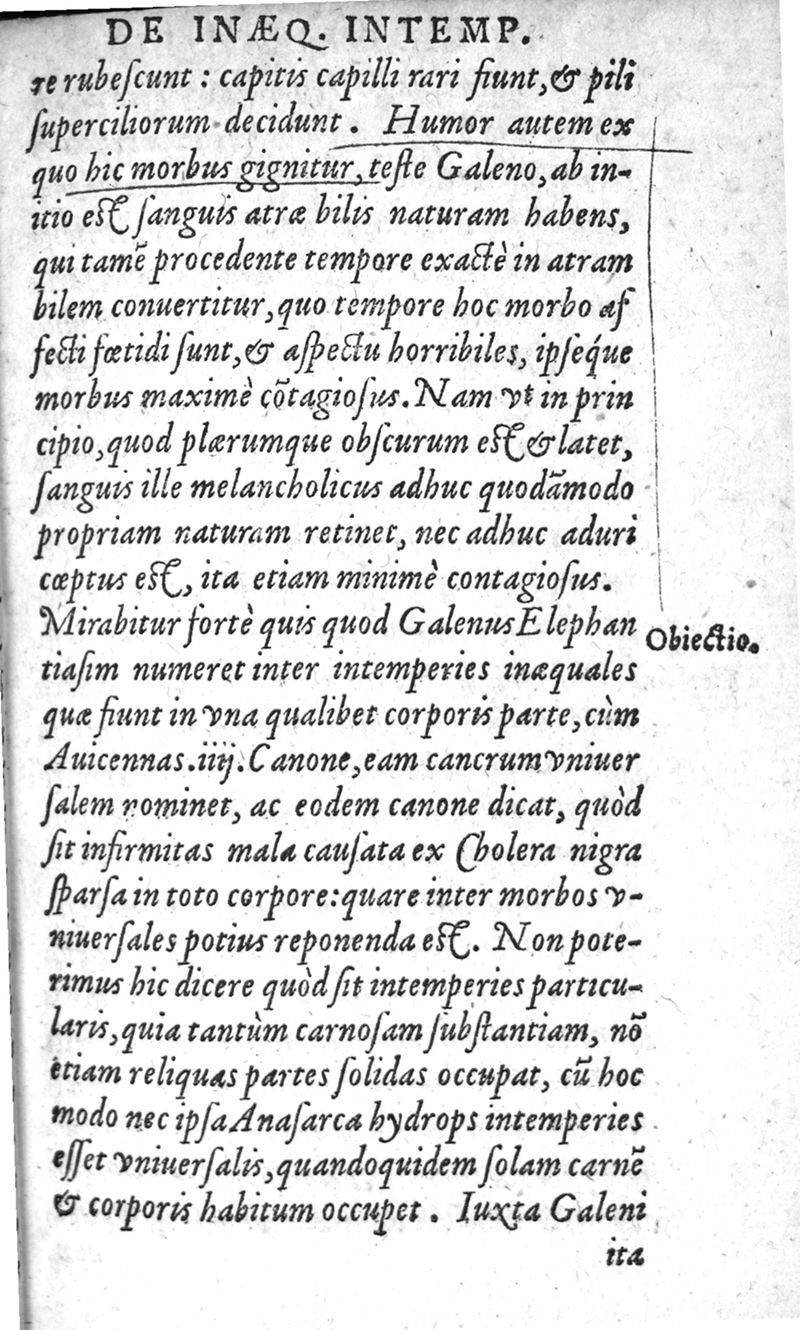 DE INÆQ. INTEMP.
re rubeſcunt : capitis capilli rari fiunt, & pili
ſuperciliorum decidunt . Humor autem ex
quo hic morbus gignitur, teſte Galeno, ab in-
itio eſt ſanguis atræ bilis naturam habens,
qui tamẽ procedente tempore exactè in atram
bilem conuertitur, quo tempore hoc morbo af
fecti fœtidi ſunt, & aſpectu horribiles, ipſéque
morbus maximè cõtagioſus. Nam vt in prin
cipio, quod plærumque obſcurum eſt & latet,
ſanguis ille melancholicus adhuc quodãmodo
propriam naturam retinet, nec adhuc aduri
cœptus eſt, ita etiam minimè contagioſus.
Mirabitur fortè quis quod Galenus Elephan
Obiectio.
tiaſim numeret inter intemperies inæquales
quæ fiunt in vna qualibet corporis parte, cùm
Auicennas .iiij. Canone, eam cancrum vniuer
ſalem nominet, ac eodem canone dicat, quòd
ſit infirmitas mala cauſata ex Cholera nigra
ſparſa in toto corpore: quare inter morbos v-
niuerſales potius reponenda eſt. Non pote-
rimus hic dicere quòd ſit intemperies particu-
laris, quia tantùm carnoſam ſubſtantiam, nõ
etiam reliquas partes ſolidas occupat, cũ hoc
modo nec ipſa Anaſarca hydrops intemperies
eſſet vniuerſalis, quandoquidem ſolam carnẽ
& corporis habitum occupet . Iuxta Galeni
ita